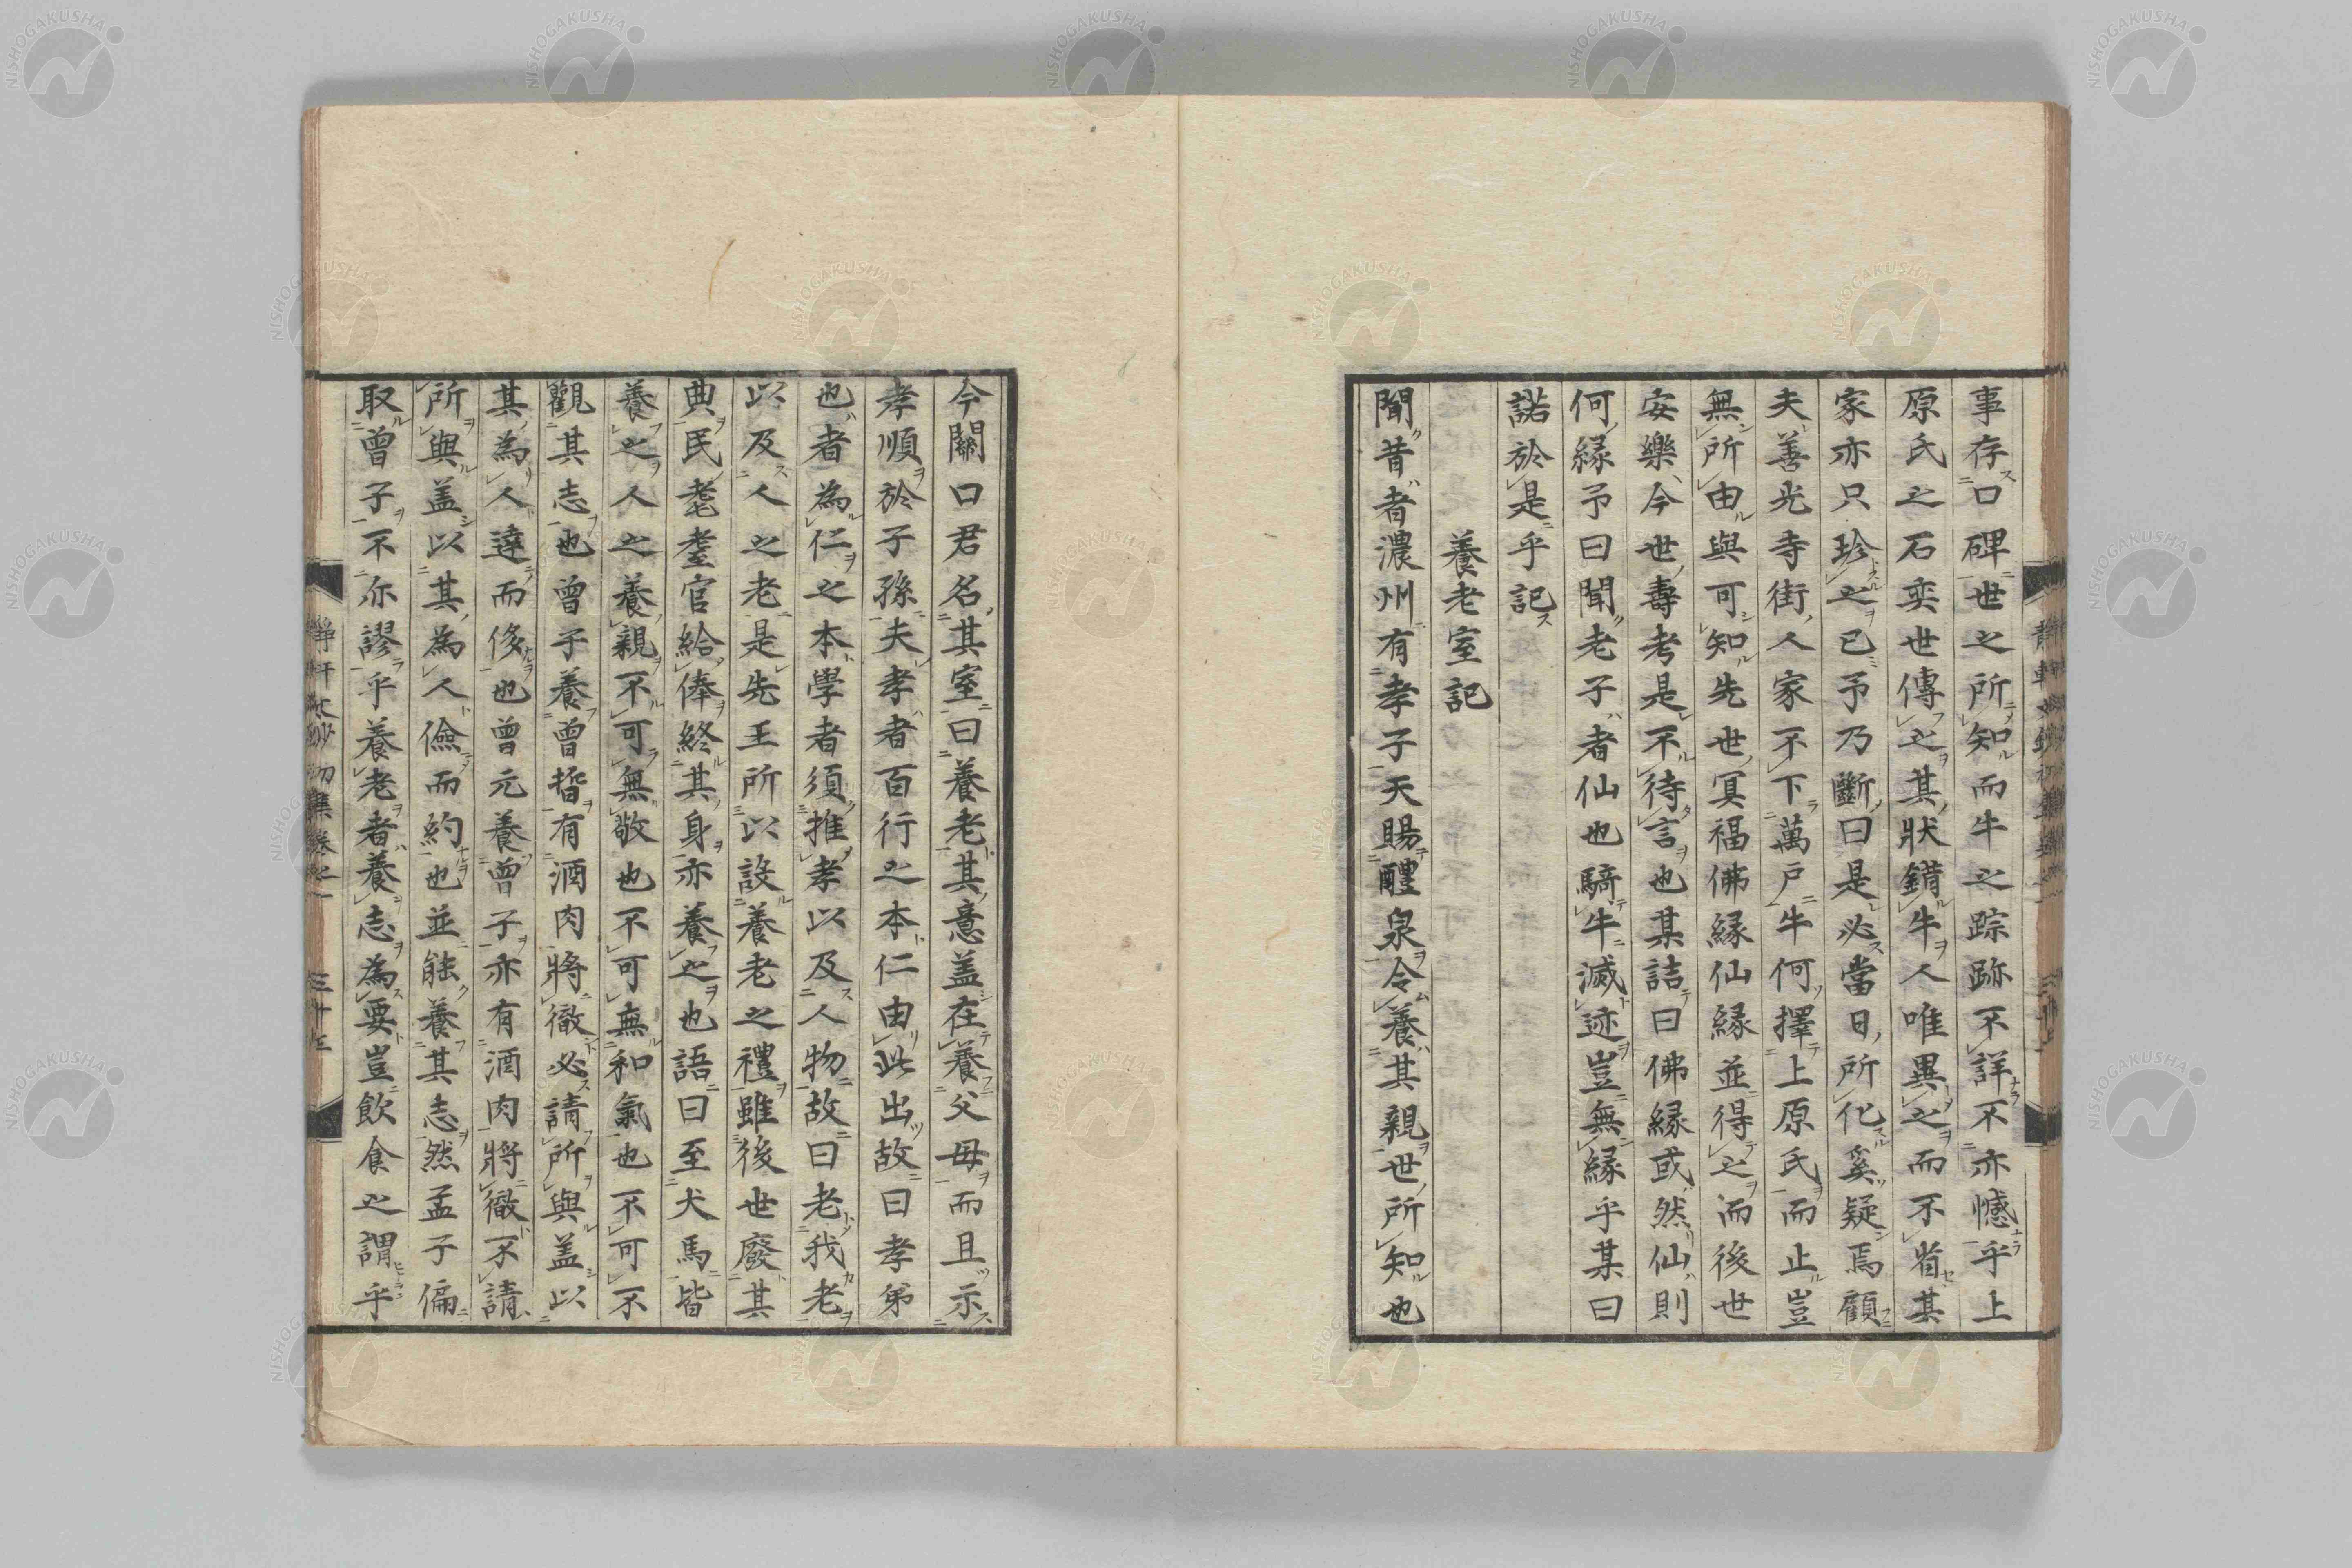 事存口碑世之所知而牛之踪跡不詳不亦憾乎上
原氏之石奕世傳之其狀錯牛人唯異之而不省其
家亦只珍之已予乃斷曰是必當日所化奚疑焉顧
夫善光寺街人家不下萬戸牛何擇上原氏而止豈
無所由與可知先世冥福佛緣仙緣並得之而後世
安樂今世壽考是不待言也某詰曰佛緣或然仙則
何緣予曰聞老子者仙也騎牛滅迹豈無緣乎某曰
諾於是乎記
養老室記
聞昔者濃州有孝子天賜醴泉令養其親世所知也
今關口君名其室曰養老其意盖在養父母而且示
孝順於子孫夫孝者百行之本仁由此出故曰孝弟
也者為仁之本學者須推孝以及人物故曰老我老
以及人之老是先王所以設養老之禮雖後世廢其
典民耄耋官給俸終其身亦養之也語曰至犬馬皆
養之人之養親不可無敬也不可無和氣也不可不
觀其志也曾子養曾晳有酒肉將徹必請所與盖以
其為人達而侈也曾元養曾子亦有酒肉將徹不請
所與盖以其為人儉而約也並能養其志然孟子偏
取曾子不亦謬乎養老者養志為要豈飲食之謂乎
靜軒文鈔初集卷之一
三十三
NISHOGAKUSHA